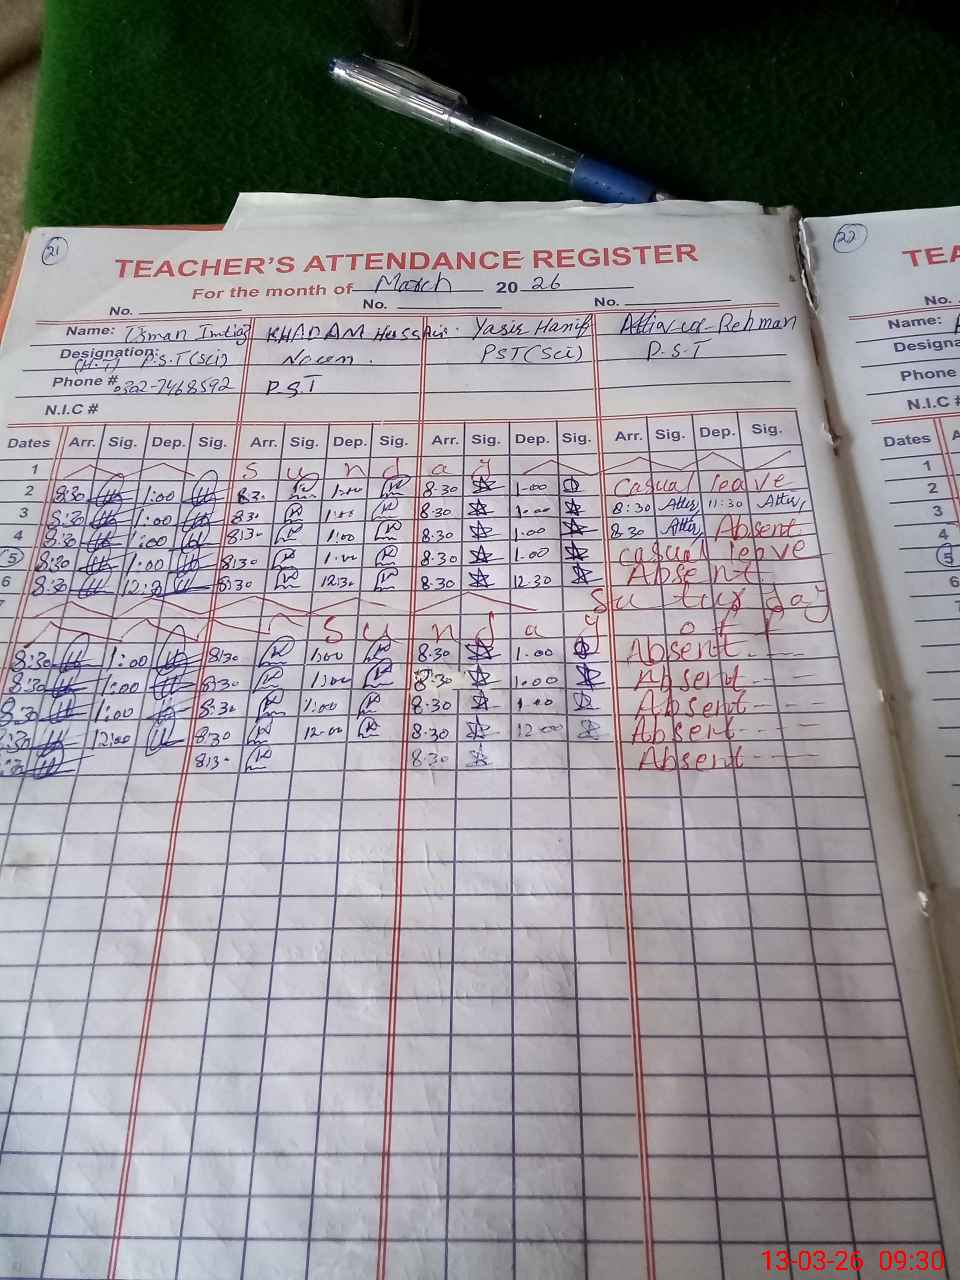 21
TEACHER'S ATTENDANCE REGISTER
For the month of March 20 26
No. No. No.
Name: Usman Imtiaz KHADAM Hussain Yasir Hanif Attiq-ur-Rehman
Designation: (H.T) P.S.T (Sci) Naeem. PST (Sci) P.S.T
Phone # 0302-7468592 P.S.T
N.I.C #
Dates Arr. Sig. Dep. Sig. Arr. Sig. Dep. Sig. Arr. Sig. Dep. Sig. Arr. Sig. Dep. Sig.
1 Sunday
2 8:30 1:00 8:30 1:00 8:30 1:00 Casual leave
3 8:30 1:00 8:30 1:00 8:30 1:00 8:30 11:30
4 8:30 1:00 8:30 1:00 8:30 1:00 8:30 Absent
5 8:30 1:00 8:30 1:00 8:30 1.00 casual leave
6 8:30 12:30 8:30 12:30 8.30 12.30 Absent
7 off
Sunday
8:30 1:00 8:30 1:00 8.30 1.00 Absent
8:30 1:00 8:30 1:00 8.30 1.00 Absent
8:30 1:00 8:30 1:00 8.30 1.00 Absent
8:30 12:00 8:30 12:00 8.30 12:00 Absent
8:30 8:30 8.30 Absent
22
TEA
No.
Name:
Designa
Phone
N.I.C #
Dates A
1
2
3
4
5
6
7
13-03-26 09:30